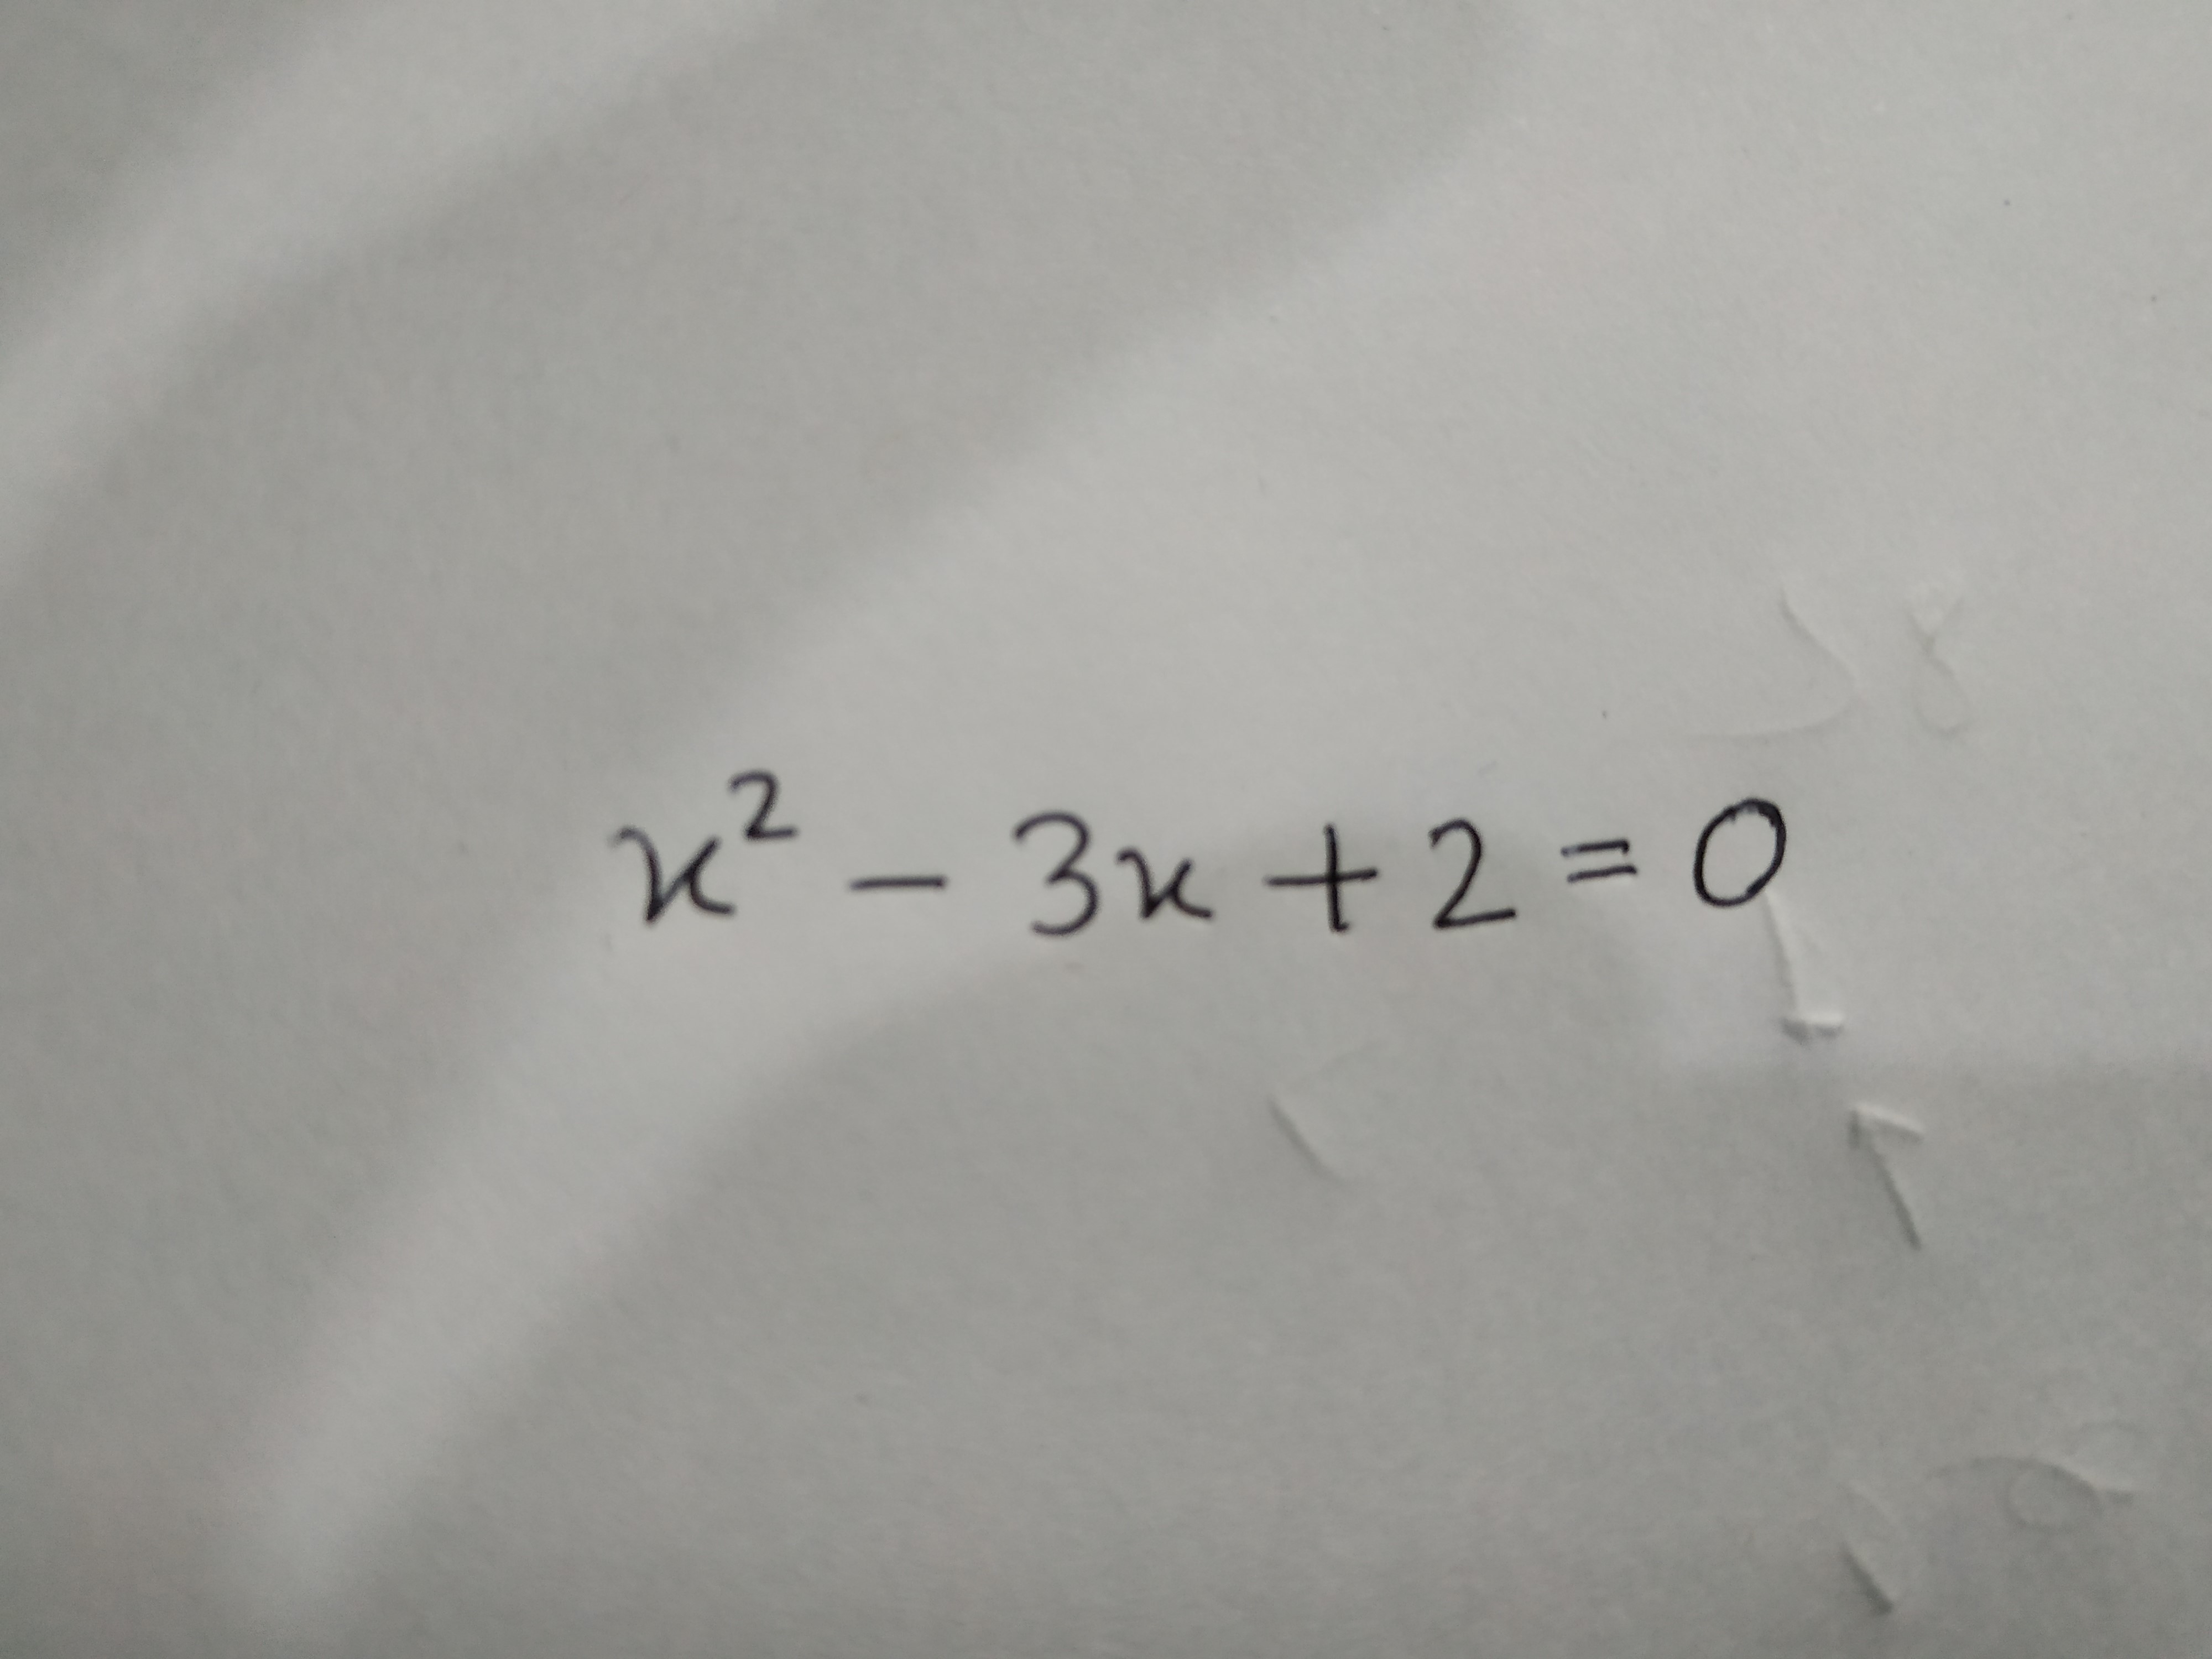 x² - 3x + 2 = 0